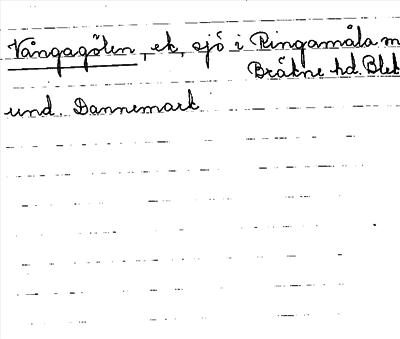 Vångagölen, ek, sjö i Ringamåla m
Bräkne hd. Blek
und Dannemark